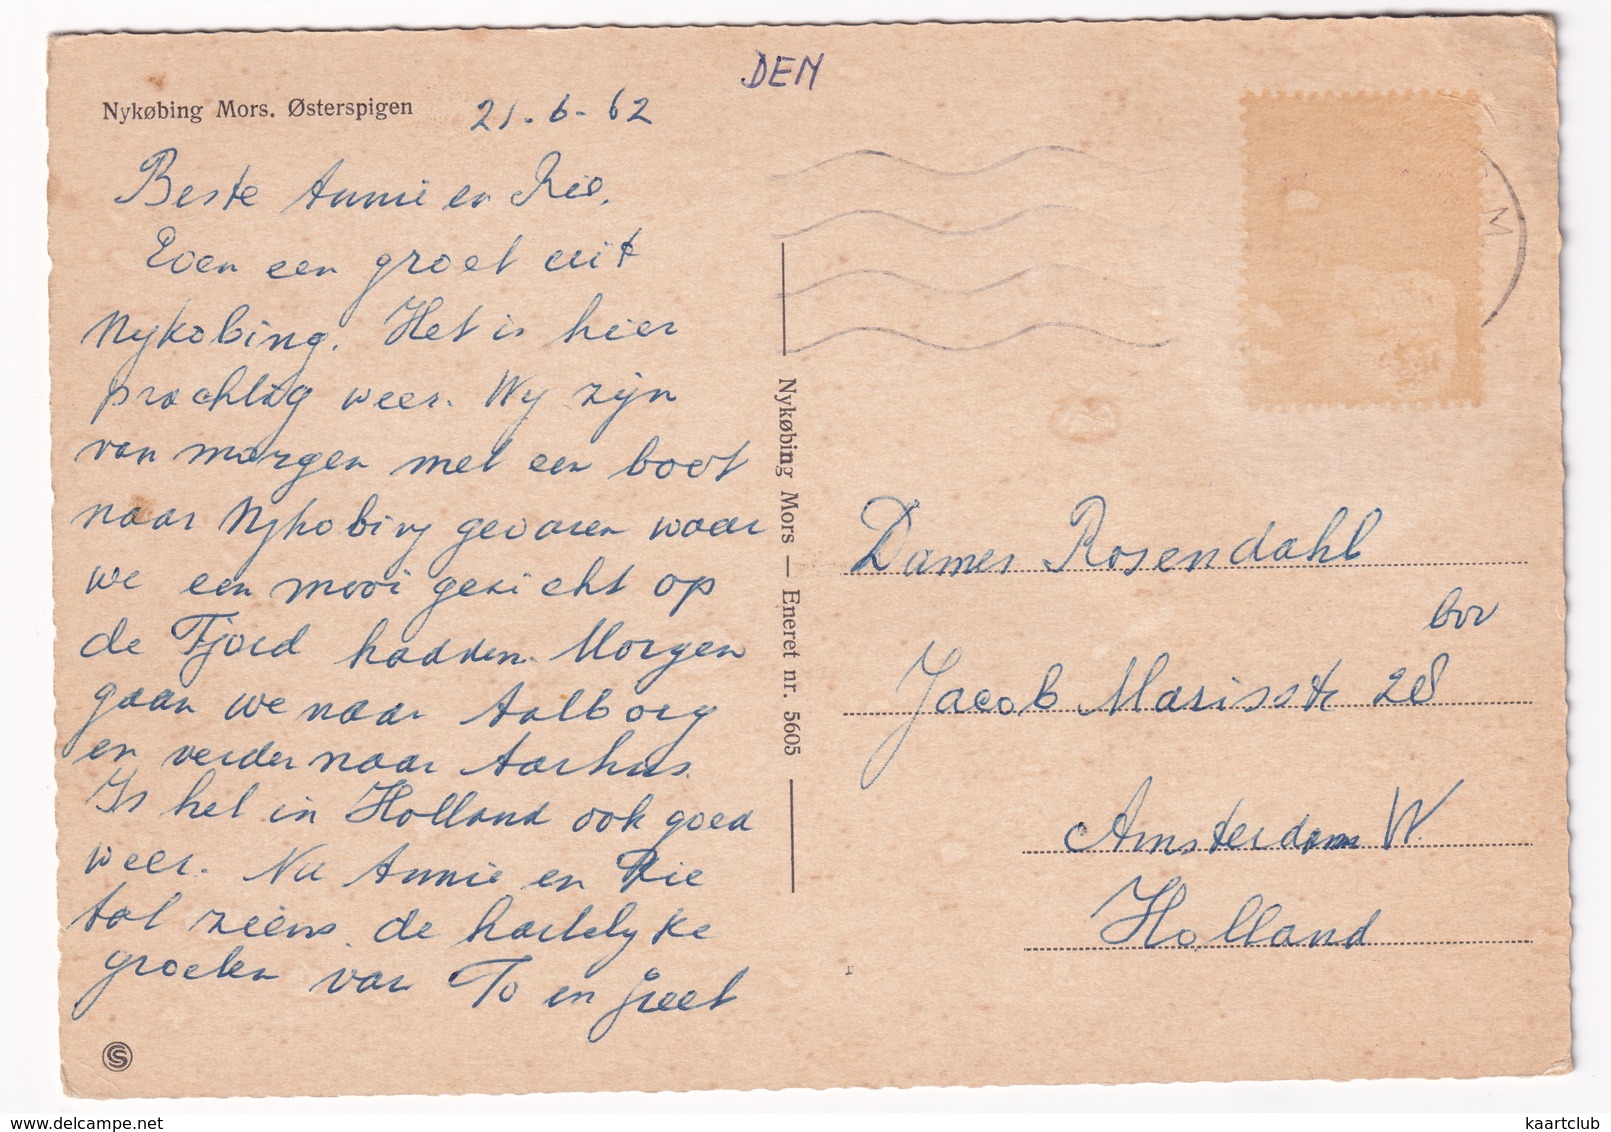 DEN
Nykøbing Mors. Østerspigen
21-6-62
Beste Annie en Rie.
Even een groet uit
Nykobing. Het is hier
prachtig weer. Wy zijn
van morgen met een boot
naar Nykobing gevaren waar
we een mooi gezicht op
de Fjord hadden. Morgen
gaan we naar Aalborg
en verder naar Aarhus.
Is het in Holland ook goed
weer. Nu Annie en Rie
tot ziens. de hartelyke
groeten van To en Greet
Nykøbing Mors — Eneret nr. 5605
Dames Rosendahl
bov
Jacob Marisstr 28
Amsterdam W.
Holland
M
delcampe.net
kaartclub